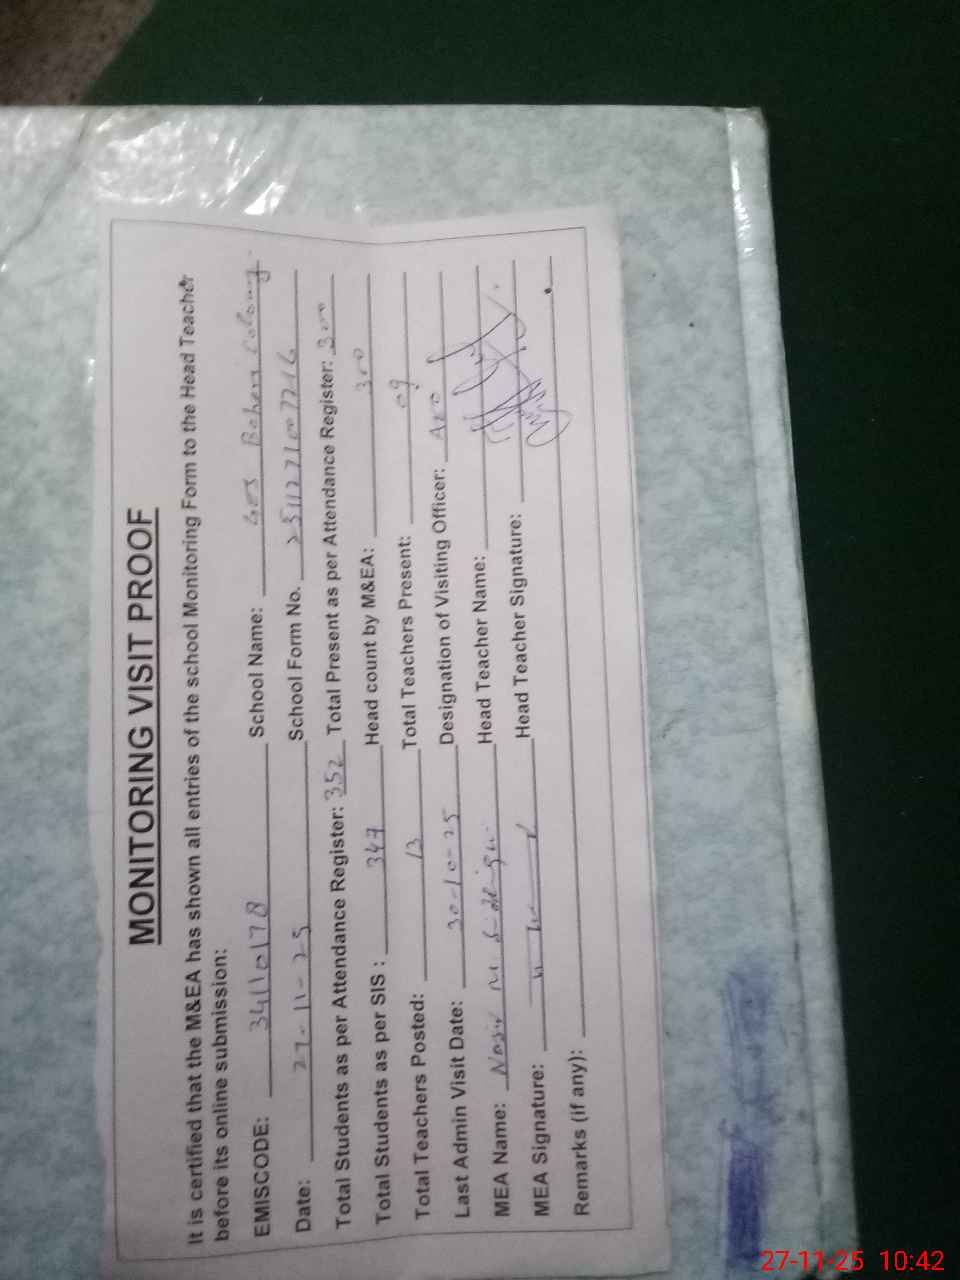 MONITORING VISIT PROOF
It is certified that the M&EA has shown all entries of the school Monitoring Form to the Head Teacher
before its online submission:
EMISCODE: 34110178 School Name: GES Behari Colony
Date: 27-11-25 School Form No. 2511271007716
Total Students as per Attendance Register: 352 Total Present as per Attendance Register: 300
Total Students as per SIS : 347 Head count by M&EA: 300
Total Teachers Posted: 13 Total Teachers Present: 09
Last Admin Visit Date: 30-10-25 Designation of Visiting Officer: AEO
MEA Name: Nasir Head Teacher Name:
MEA Signature: Head Teacher Signature:
Remarks (if any):
27-11-25 10:42